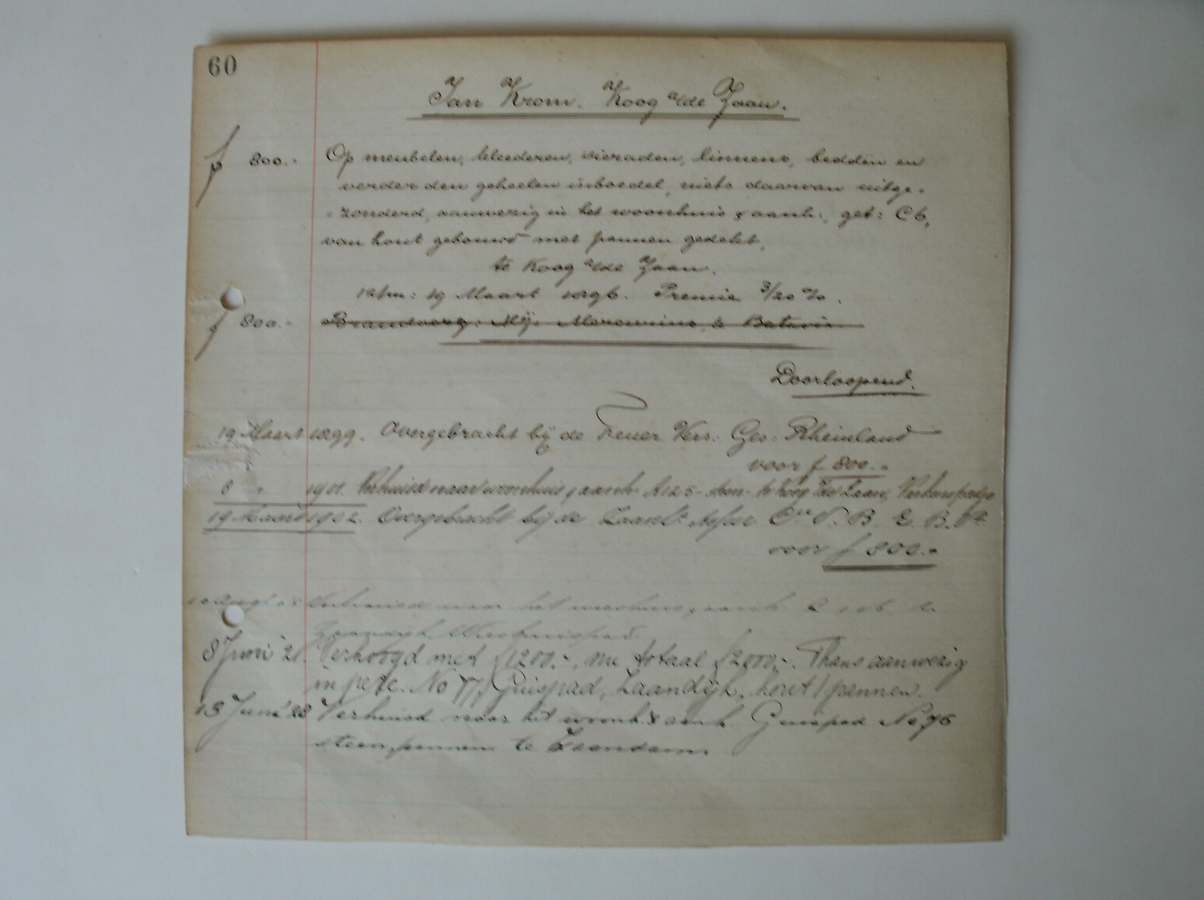 60
Jan Krom. Koog a/de Zaan.
f 800.- Op meubelen, kleederen, sieraden, linnens, beddin en
verder den geheelen inboedel, niets daarvan uitge-
-zonderd, aanwezig in het woonhuis & aanh:, get: C 6,
van hout gebouwd met pannen gedekt,
te Koog a/de Zaan.
12/m: 19 Maart 1896. Premie 3/20 %.
f 800.- Brandverz: Mij: Merwede & Batavia
Doorloopend.
19 Maart 1899. Overgebracht bij de Feuer Vers: Ges: Rheinland
voor f 800.-
8 " 1901. Verhuisd naar woonhuis & aanh A125 te Koog a/d Zaan,
19 Maart 1902. Overgebracht bij de Zaanl. Assur. Cie V. B. E. B.
voor f 800.-
Verhuisd naar het woonhuis & aanh te
Zaandijk
8 Juni '21 Verhoogd met f 1200.-, in totaal f 2000.-. Thans aanwezig
in perc. No 77, Guispad, Zaandijk, hout/pannen.
15 Juni '28 Verhuisd naar het woonh. & aanh Guispad No 76
steen, pannen te Zaandam